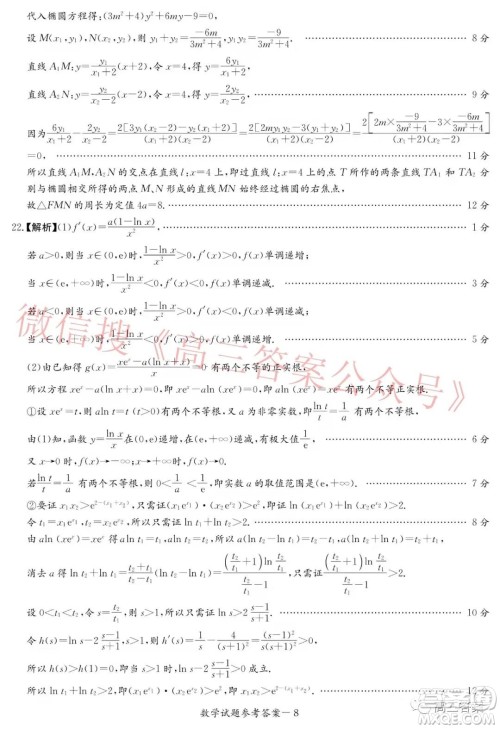 代入椭圆方程得:(3m²+4)y²+6my-9=0,
设 M(x₁,y₁),N(x₂,y₂),则 y₁+y₂=-6m/(3m²+4),y₁y₂=-9/(3m²+4). 8 分
直线 A₁M:y=y₁/(x₁+2)(x+2),令 x=4,得 y=6y₁/(x₁+2),
直线 A₂N:y=y₂/(x₂-2)(x-2),令 x=4,得 y=2y₂/(x₂-2). 9 分
因为 6y₁/(x₁+2)-2y₂/(x₂-2)=2[3y₁(x₂-2)-y₂(x₁+2)]/((x₁+2)(x₂-2))=2[2my₁y₂-3(y₁+y₂)]/((x₁+2)(x₂-2))=2[2m×-9/(3m²+4)-3×-6m/(3m²+4)]/((x₁+2)(x₂-2))
=0, 11 分
所以直线 A₁M,A₂N 的交点在直线 l 上,即过直线 l:x=4 上的点 T 所作的两条直线 TA₁ 和 TA₂ 分
别与椭圆相交所得的两点 M、N 形成的直线 MN 始终经过椭圆的右焦点,
故△FMN 的周长为定值 4a=8. 12 分
22.【解析】(1)f′(x)=a(1-ln x)/x². 1 分
若 a>0,则当 x∈(0,e)时,(1-ln x)/x²>0,f′(x)>0,f(x)单调递增;
当 x∈(e,+∞)时,(1-ln x)/x²<0,f′(x)<0,f(x)单调递减. 3 分
若 a<0,则当 x∈(0,e)时,(1-ln x)/x²>0,f′(x)<0,f(x)单调递减;
当 x∈(e,+∞)时,(1-ln x)/x²<0,f′(x)>0,f(x)单调递增. 5 分
(2)由已知得 g(x)=(xeˣ-a(ln x+x))/x=0 有两个不等的正实根,
所以方程 xeˣ-a(ln x+x)=0,即 xeˣ-aln (xeˣ)=0,即 xeˣ=aln (xeˣ)有两个不等正实根.
①设 xeˣ=t,则 t=aln t(t>0)有两个不等根,又 a 为非零实数,即ln t/t=1/a有两个不等根,
由(1)知,函数 y=ln x/x在(0,e)上单调递增,在(e,+∞)上单调递减,且 f(e)=1/e, 6 分
又 x→0 时,f(x)→-∞,x→+∞时,f(x)→0,
若ln t/t=1/a有两个不等根,则 0<1/a<1/e,即 a 的取值范围是(e,+∞). 7 分
②要证 x₁x₂>e^(2-(x₁+x₂)),只需证(x₁e^(x₁))·(x₂e^(x₂))>e²,即证 ln(x₁e^(x₁))+ln(x₂e^(x₂))>2. 8 分
令 t₁=x₁e^(x₁),t₂=x₂e^(x₂),所以只需证 ln t₁+ln t₂>2.
由①得 t₁=aln t₁,t₂=aln t₂,所以 a(ln t₂-ln t₁)=t₂-t₁,a(ln t₂+ln t₁)=t₂+t₁,
消去 a 得 ln t₂+ln t₁=(t₂+t₁)/(t₂-t₁)(ln t₂-ln t₁)=((t₂/t₁+1)ln t₂/t₁)/(t₂/t₁-1),只需证((t₂/t₁+1)ln t₂/t₁)/(t₂/t₁-1)>2.
设 0<t₁<t₂,令 s=t₂/t₁,则 s>1,所以只需证 ln s>2(s-1)/(s+1). 10 分
令 h(s)=ln s-2(s-1)/(s+1),s>1,则 h′(s)=1/s-4/(s+1)²=(s-1)²/(s(s+1)²)>0,
所以 h(s)>h(1)=0,即当 s>1 时,ln s-2(s-1)/(s+1)>0 成立.
所以 ln t₁+ln t₂>2,即(x₁e^(x₁))·(x₂e^(x₂))>e²,即 x₁x₂>e^(2-(x₁+x₂)). 12 分
数学试题参考答案—8
微信搜《高三答案公众号》
高三答案